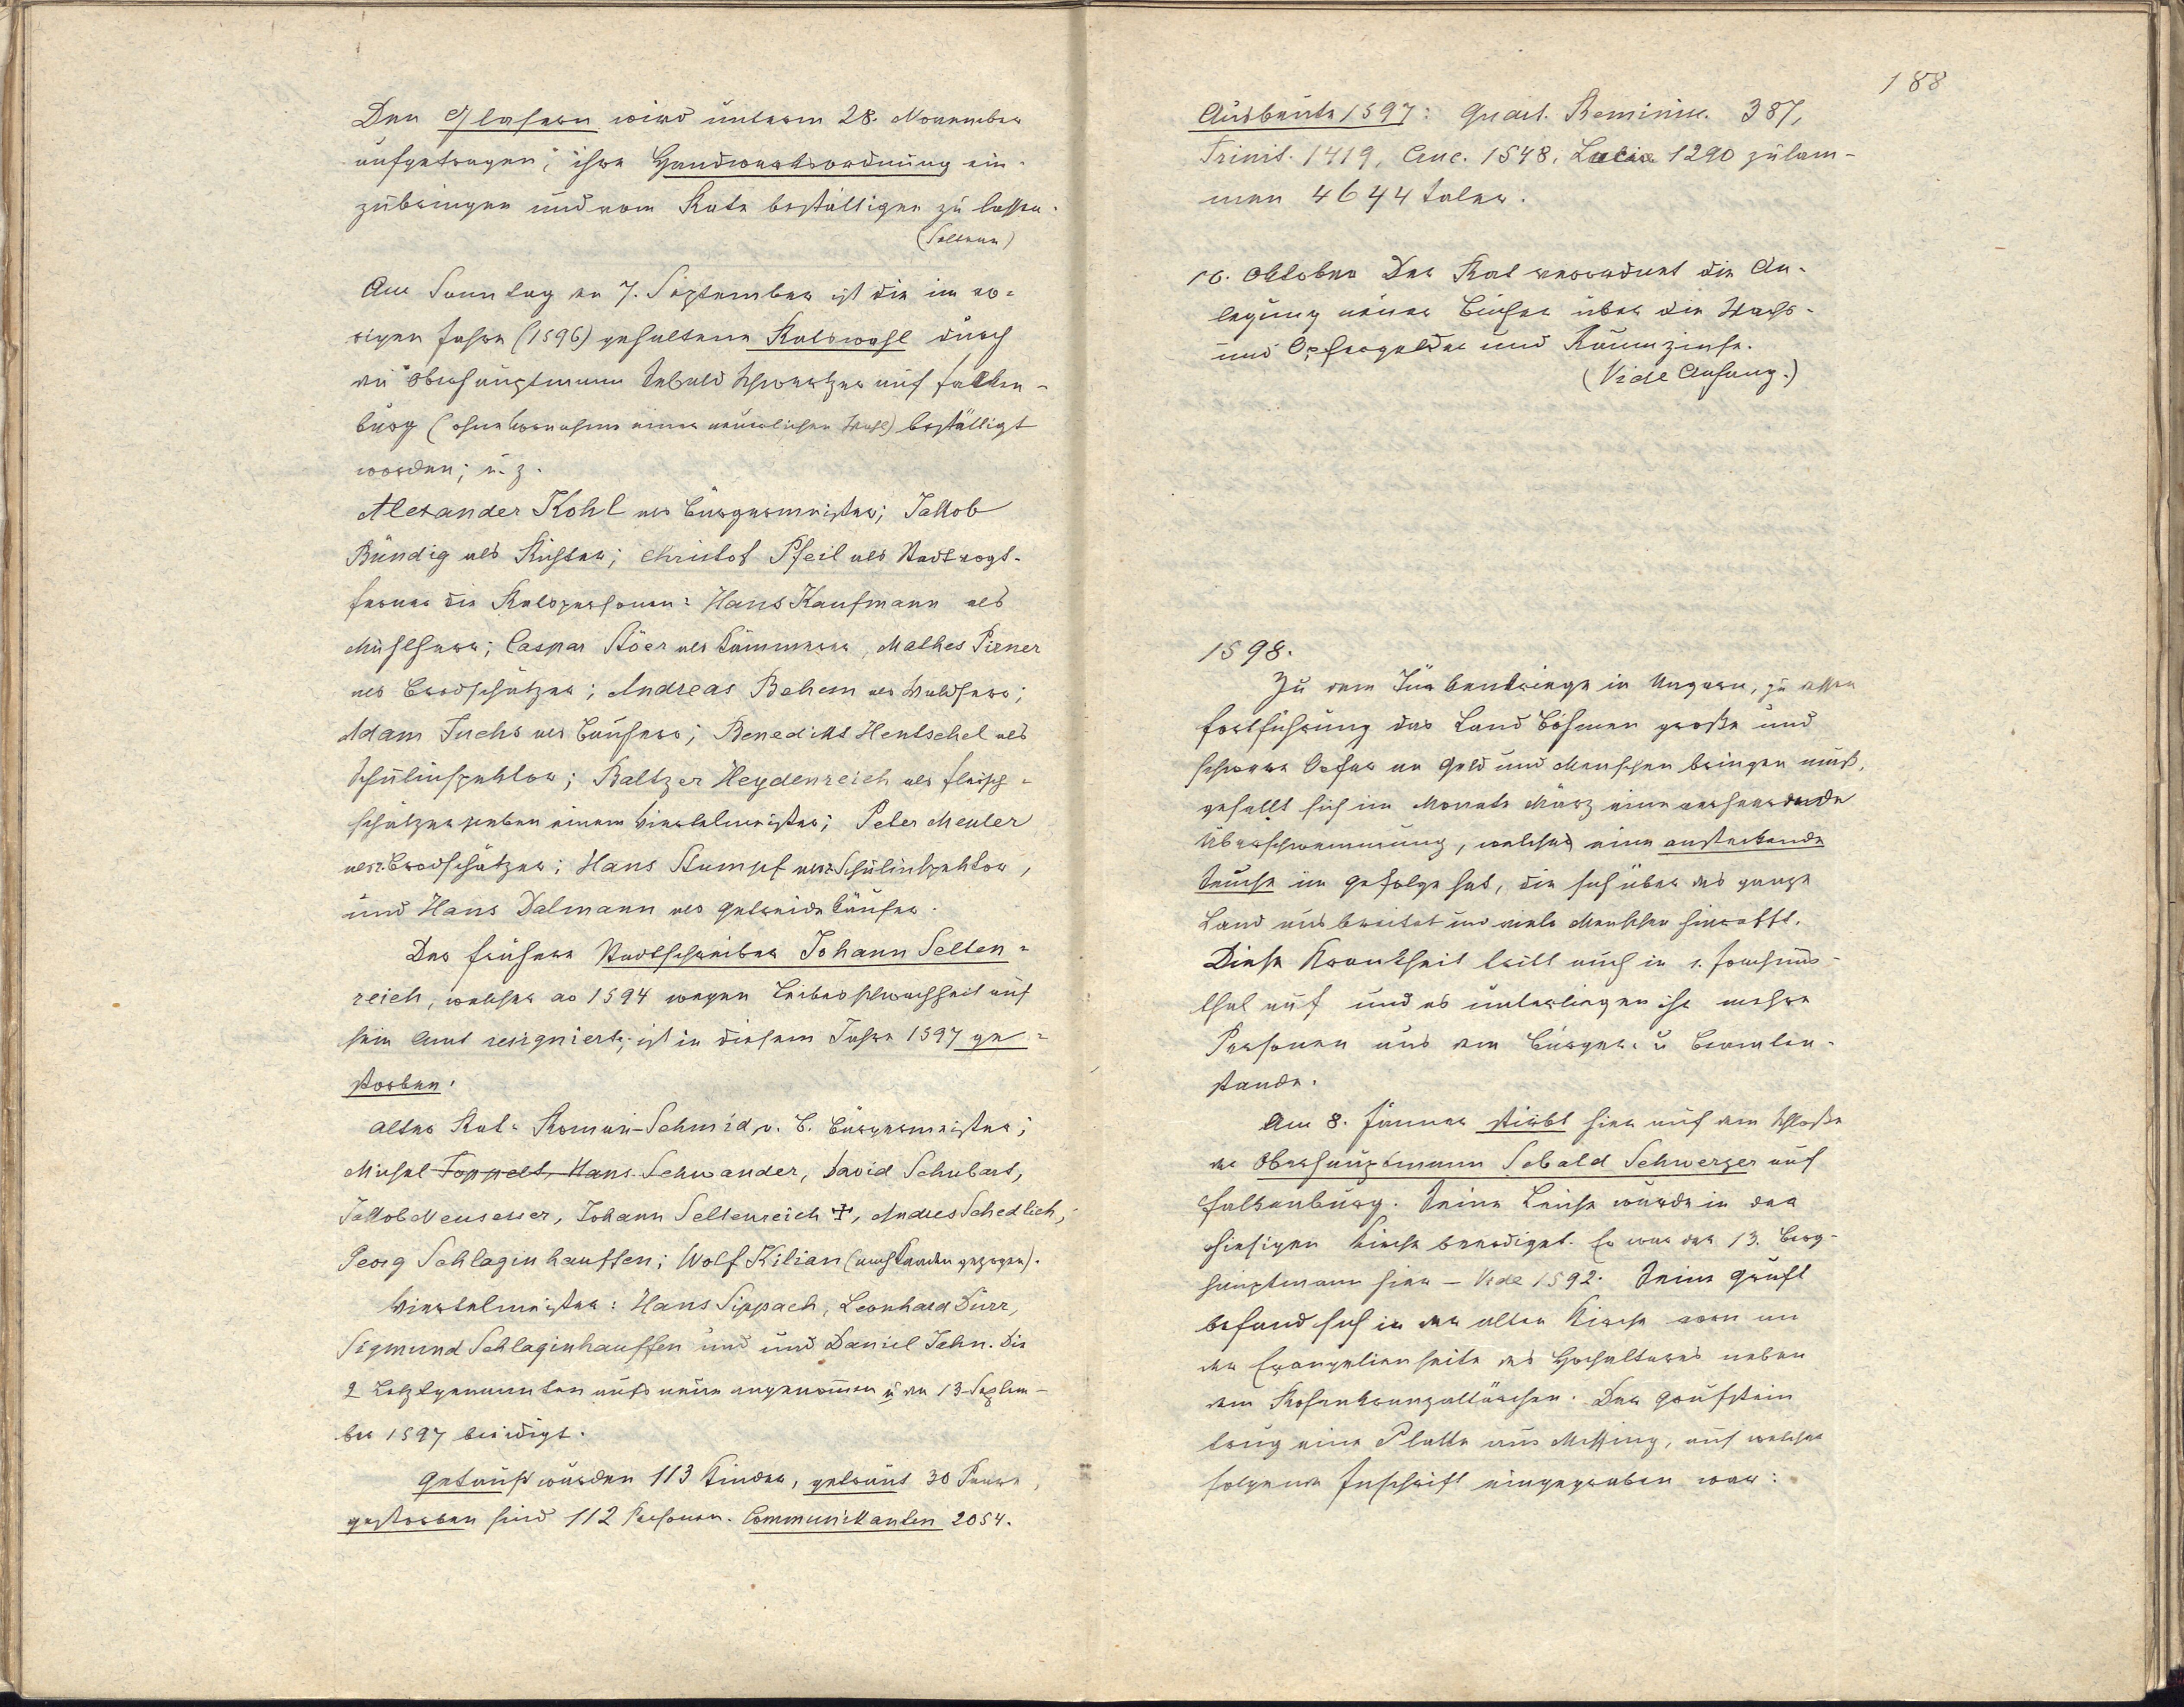 Den Glasern wird unterm 28. November
aufgetragen, ihre Handwerksordnung ein-
zubringen und vom Rate bestättigen zu lassen.
(Seltenr.)
Am Sonntag den 7. September ist die im vo-
rigen Jahre (1596) gehaltene Ratswahl durch
den Oberhauptmann Sebald Schwertzer auf Falken-
burg (ohne Vornahme einer neuerlichen Wahl) bestättigt
worden; u. z.
Alexander Kohl als Bürgermeister; Jakob
Bündig als Richter; Christof Pfeil als Stadtvogt.
ferner die Ratspersonen: Hans Kaufmann als
Mühlherr; Caspar Stöer als Kämmerer, Mathes Pirner
als Brodschätzer; Andreas Behem als Waldherr;
Adam Fuchs als Bauherr; Benedikt Hentschel als
Schulinspektor; Baltzer Heydenreich als Fleisch-
schätzer neben einem Viertelmeister; Peter Meuler
als 2. Brodschätzer; Hans Stumpf als 2. Schulinspektor,
und Hans Dalmann als Getreidekäufer.
Der frühere Stadtschreiber Johann Selten-
reich, welcher ao 1594 wegen Leibesschwachheit auf
sein Amt resigniert, ist in diesem Jahre 1597 ge-
storben.
Alter Rat: Roman Schmid, v. B. Bürgermeister;
Michel Toppelt, Hans Schwander, David Schubart,
Jakob Neusesser, Johann Seltenreich ✝, Andres Schedlich,
Georg Schlaginhauffen; Wolf Kilian (nach Kaaden gezogen).
Viertelmeister: Hans Sippach, Leonhard Dürr,
Sigmund Schlaginhauffen und und Daniel Jahn. Die
2 Letztgenannten aufs neue angenommen u den 13. Septem-
ber 1597 beeidigt.
Getauft wurden 113 Kinder, getraut 30 Paare,
gestorben sind 112 Personen. Communikanten 2054.
188
Ausbeute 1597: Quart. Reminisc. 387,
Trinit. 1419, Cruc. 1548, Lucia 1290 zusam-
men 4644 Taler.
16. Oktober Der Rat verordnet die An-
legung neuer Bücher über die Wachs-
und Opfergelder und Raumzinse.
(Vide Anfang.)
1598.
Zu dem Türkenkriege in Ungarn, zu dessen
Fortführung das Land Böhmen große und
schwere Opfer an Geld und Menschen bringen muß,
gesellt sich im Monate März eine verheerende
Überschwemmung, welche eine ansteckende
Seuche im Gefolge hat, die sich über das ganze
Land ausbreitet und viele Menschen hinrafft.
Diese Krankheit tritt auch in s. Joachims-
thal auf und es unterliegen ihr mehre
Personen aus dem Bürger- u Beamten-
stande.
Am 8. Jänner stirbt hier auf dem Schloße
der Oberhauptmann Sebald Schwerzer auf
Falkenburg. Seine Leiche wurde in der
hiesigen Kirche beerdiget. Er war der 13. Berg-
hauptmann hier – Vide 1592. Seine Gruft
befand sich in der alten Kirche vorn an
der Evangelienseite des Hochaltares neben
dem Rosenkranzaltärchen. Der Grufstein
trug eine Platte aus Messing, auf welcher
folgende Inschrift eingegraben war: